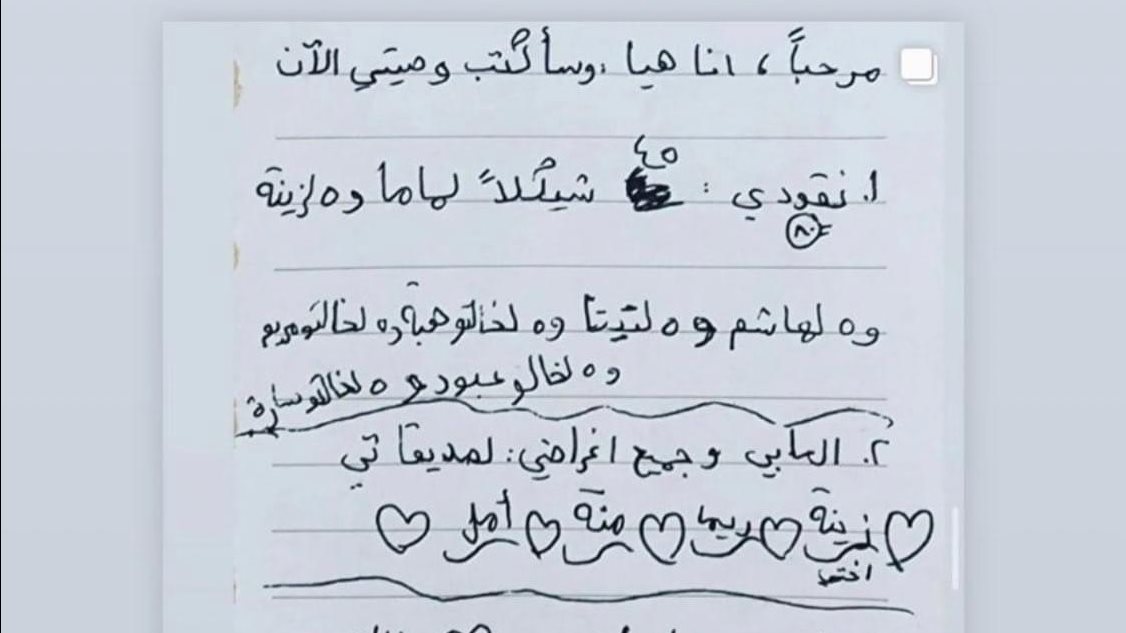 مرحباً ، انا هيا ، وسأكتب وصيتي الآن
٤٥
١. نقودي : شيكلاً لماما و ٥ لزينة
٨٠
و ٥ لهاشم و ٥ لتيتا و ٥ لخالتو هبة و ٥ لخالتو مريم
و ٥ لخالو عبود و ٥ لخالتو سارة
٢. العابي و جميع اغراضي : لصديقاتي
زينة ريما منة أمل
اختها